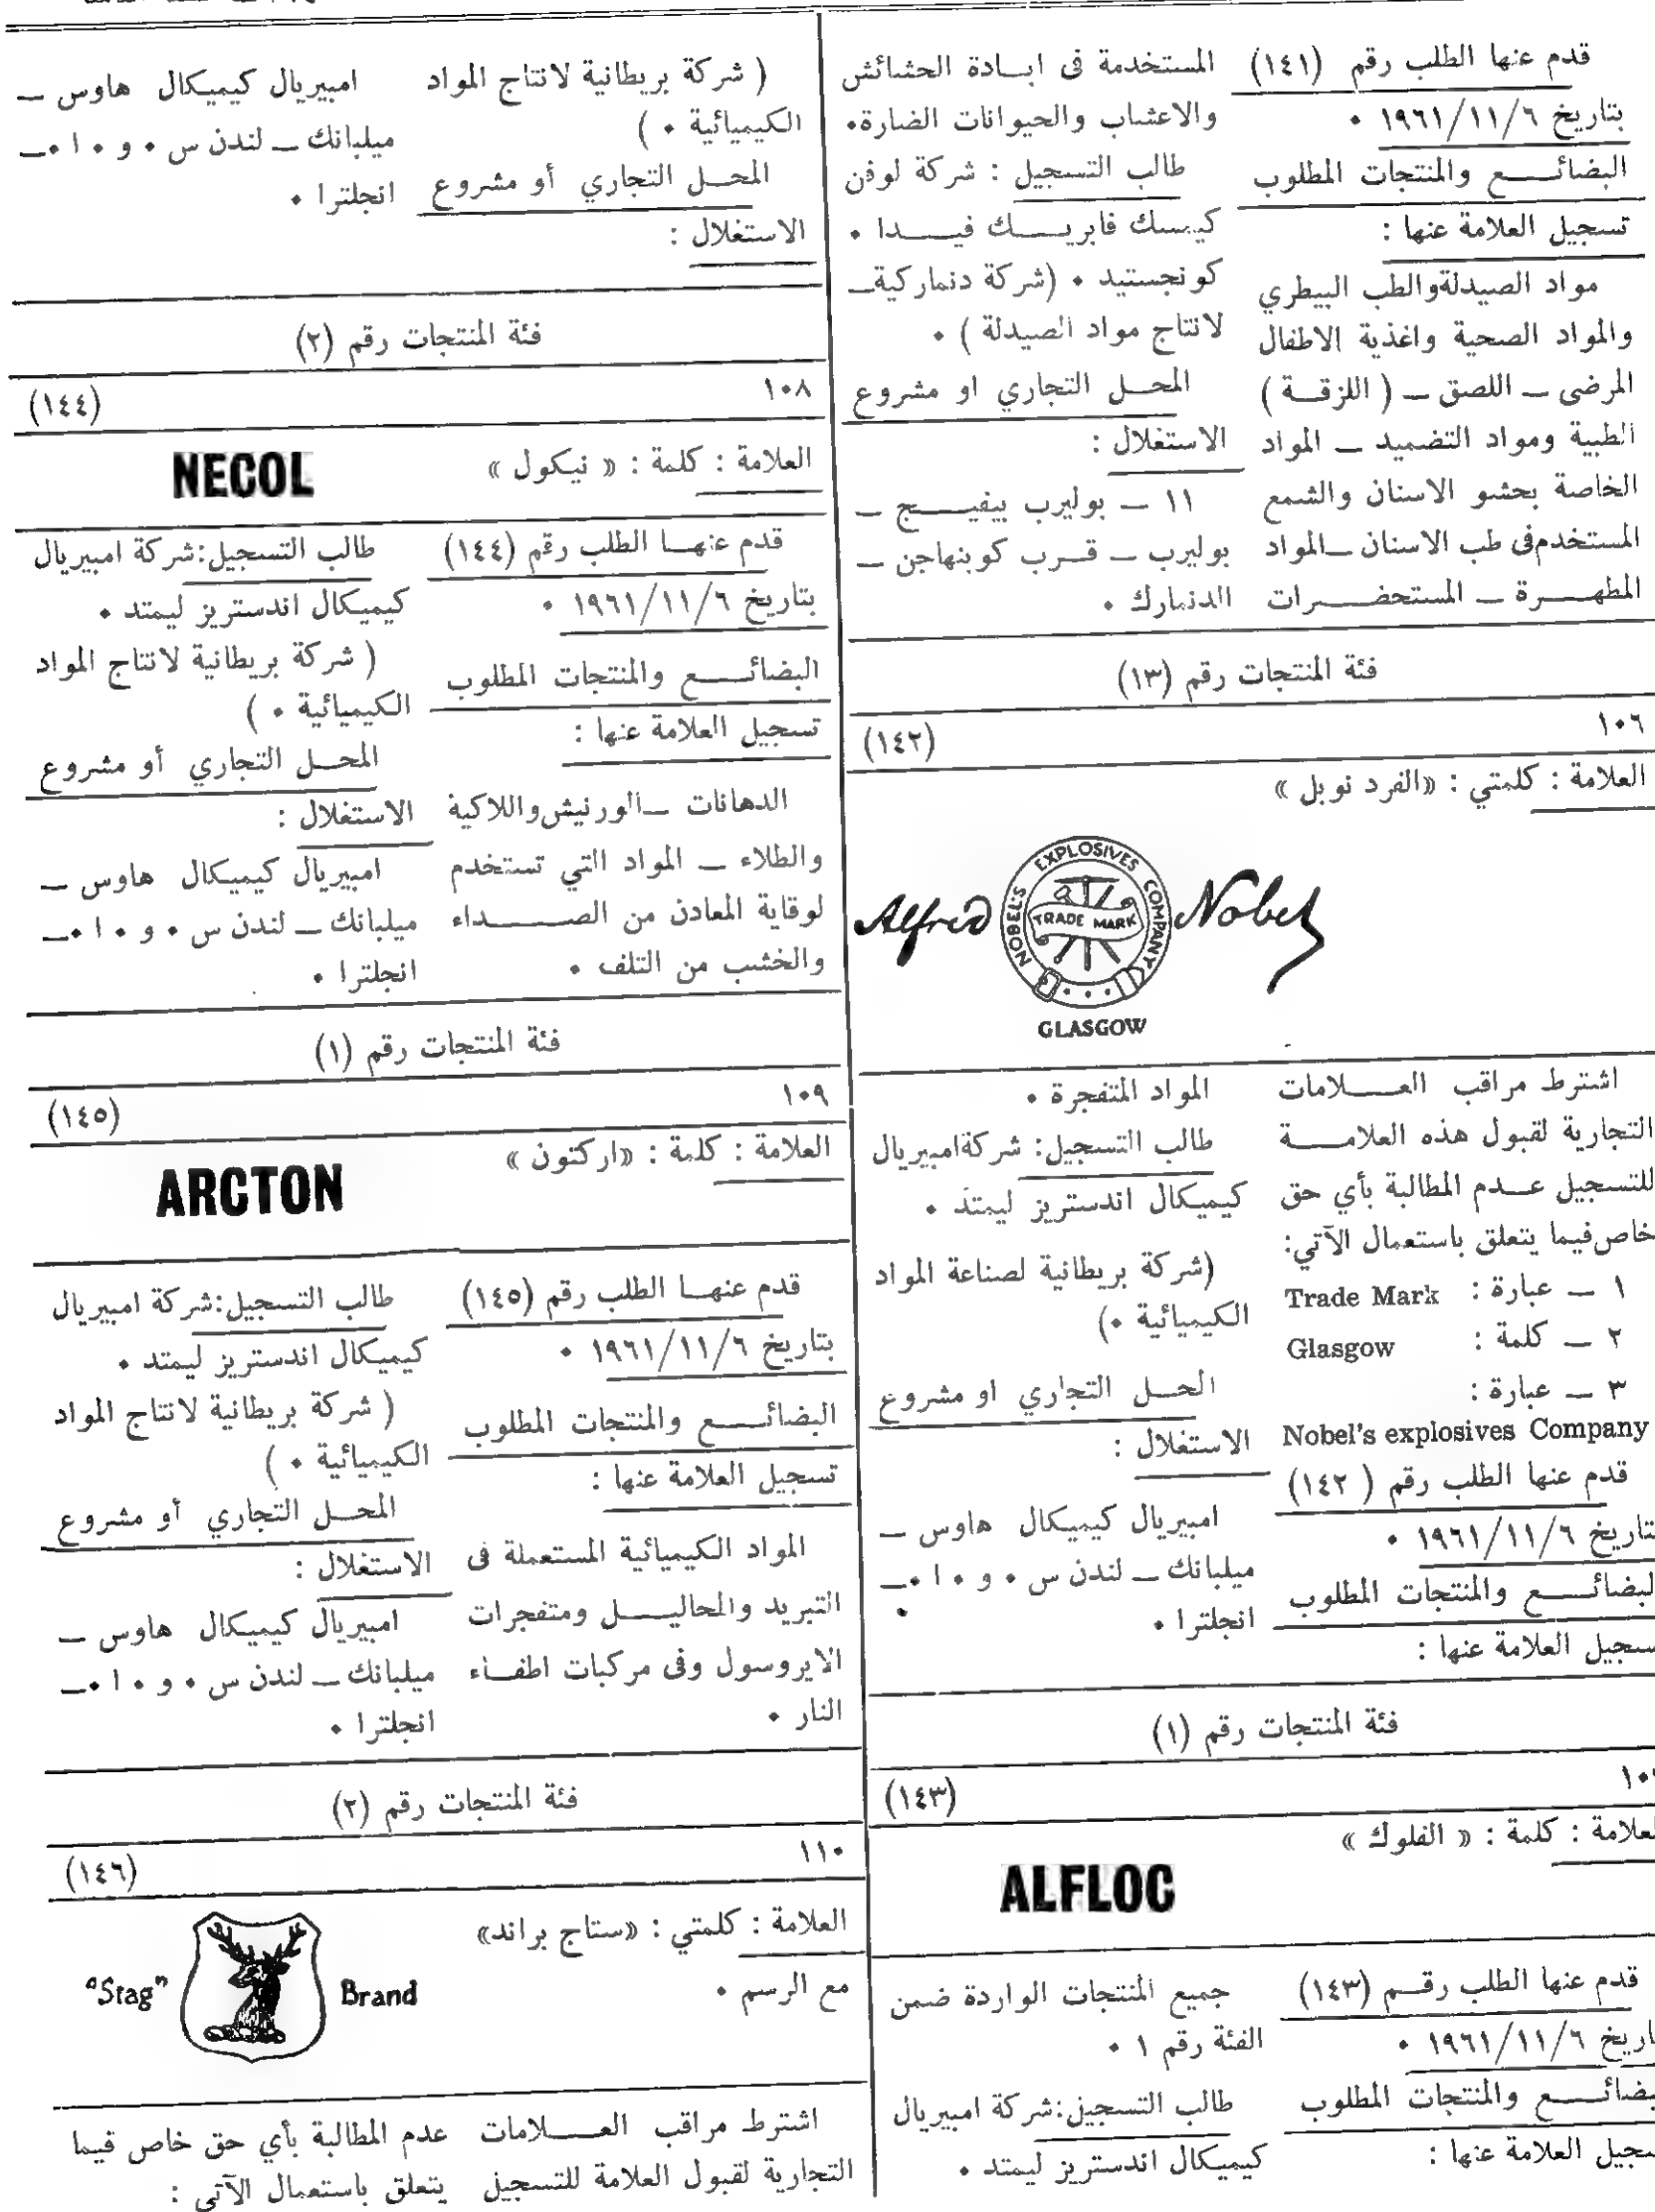 قدم عنها الطلب رقم (١٤١)
بتاريخ ١٩٦١/١١/٦ ٠
البضائــــع والمنتجات المطلوب
تسجيل العلامة عنها :
مواد الصيدلة والطب البيطري
والمواد الصحية واغذية الاطفال
المرضى ــ اللصق ــ ( اللزقــة )
الطبية ومواد التضميد ــ المواد
الخاصة بحشو الاسنان والشمع
المستخدم فى طب الاسنان ــ المواد
المطهــــرة ــ المستحضــــرات
المستخدمة فى ابــادة الحشائش
والاعشاب والحيوانات الضارة٠
طالب التسجيل : شركة لوفن
كيمسك فابريــــك فيــــدا ٠
كونجستيد ٠ (شركة دنماركية ــ
لانتاج مواد الصيدلة ) ٠
المحــل التجاري او مشروع
الاستغلال :
١١ ــ بوليرب بيفيــــج ــ
بوليرب ــ قــرب كوبنهاجن ــ
الدنمارك ٠
فئة المنتجات رقم (١٣)
١٠٦
(١٤٢)
العلامة : كلمتي : «الفرد نوبل »
Alfred
NOBEL'S EXPLOSIVES COMPANY
TRADE MARK
Nobel
GLASGOW
اشترط مراقب العــــلامات
التجارية لقبول هذه العلامــــة
للتسجيل عــدم المطالبة بأي حق
خاص فيما يتعلق باستعمال الآتي:
١ ــ عبارة : Trade Mark
٢ ــ كلمة : Glasgow
٣ ــ عبارة :
Nobel's explosives Company
قدم عنها الطلب رقم ( ١٤٢)
تاريخ ١٩٦١/١١/٦ ٠
لبضائــــع والمنتجات المطلوب
سجيل العلامة عنها :
المواد المتفجرة ٠
طالب التسجيل: شركة امبيريال
كيميكال اندستريز ليمتد ٠
(شركة بريطانية لصناعة المواد
الكيميائية ٠)
الحــل التجاري او مشروع
الاستغلال :
امبيريال كيميكال هاوس ــ
ميلبانك ــ لندن س ٠ و ٠ ١ ٠ــ
انجلترا ٠
فئة المنتجات رقم (١)
(١٤٣)
لعلامة : كلمة : « الفلوك »
ALFLOC
قدم عنها الطلب رقــم (١٤٣)
اريخ ١٩٦١/١١/٦ ٠
بضائــــع والمنتجات المطلوب
سجيل العلامة عنها :
جميع المنتجات الواردة ضمن
الفئة رقم ١ ٠
طالب التسجيل:شركة امبيريال
كيميكال اندستريز ليمتد ٠
( شركة بريطانية لانتاج المواد
الكيميائية ٠ )
المحــل التجاري أو مشروع
الاستغلال :
امبيريال كيميكال هاوس ــ
ميلبانك ــ لندن س ٠ و ٠ ١ ٠ــ
انجلترا ٠
فئة المنتجات رقم (٢)
١٠٨
(١٤٤)
العلامة : كلمة : « نيكول »
NECOL
قدم عنهــا الطلب رقم (١٤٤)
بتاريخ ١٩٦١/١١/٦ ٠
البضائــــع والمنتجات المطلوب
تسجيل العلامة عنها :
الدهانات ــ الورنيش واللاكية
والطلاء ــ المواد التي تستخدم
لوقاية المعادن من الصــــداء
والخشب من التلف ٠
طالب التسجيل:شركة امبيريال
كيميكال اندستريز ليمتد ٠
( شركة بريطانية لانتاج المواد
الكيميائية ٠ )
المحــل التجاري أو مشروع
الاستغلال :
امبيريال كيميكال هاوس ــ
ميلبانك ــ لندن س ٠ و ٠ ١ ٠ــ
انجلترا ٠
فئة المنتجات رقم (١)
١٠٩
(١٤٥)
العلامة : كلمة : «اركتون »
ARCTON
قدم عنهــا الطلب رقم (١٤٥)
بتاريخ ١٩٦١/١١/٦ ٠
البضائــــع والمنتجات المطلوب
تسجيل العلامة عنها :
المواد الكيميائية المستعملة فى
التبريد والمحاليــــل ومتفجرات
الايروسول وفى مركبات اطفــاء
النار ٠
طالب التسجيل:شركة امبيريال
كيميكال اندستريز ليمتد ٠
( شركة بريطانية لانتاج المواد
الكيميائية ٠ )
المحــل التجاري أو مشروع
الاستغلال :
امبيريال كيميكال هاوس ــ
ميلبانك ــ لندن س ٠ و ٠ ١ ٠ــ
انجلترا ٠
فئة المنتجات رقم (٢)
١١٠
(١٤٦)
العلامة : كلمتي : «ستاج براند»
مع الرسم ٠
"Stag" Brand
اشترط مراقب العــــلامات
التجارية لقبول العلامة للتسجيل
عدم المطالبة بأي حق خاص فيما
يتعلق باستعمال الآتي :